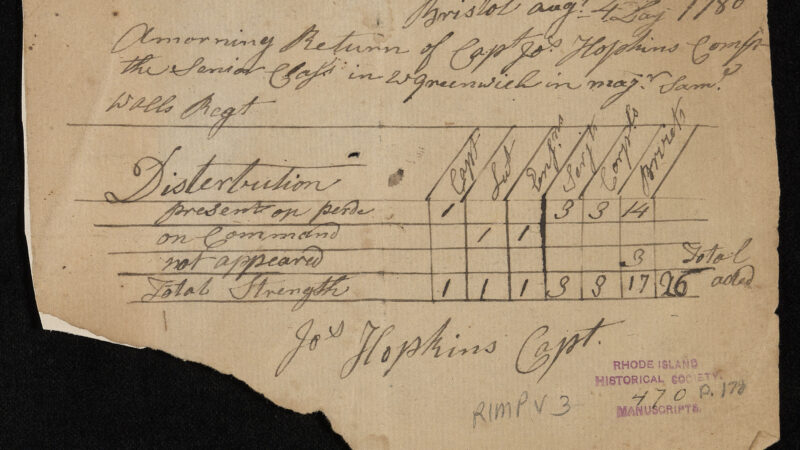 Bristol augt 4 Day 1780
A morning Return of Capt Jos Hopkins Compy
the Senior Class in w greenwich in majr Saml
Walls Regt
Capt Lut Ensns Serjts Corpls Privets
Disterbution
present on perde 1 3 3 14
on Command 1 1
not appeared 3 Total
Total Strength 1 1 1 3 3 17 26 aded
Jos Hopkins Capt.
RHODE ISLAND
HISTORICAL SOCIETY.
470 P. 178
MANUSCRIPTS.
RIMP V 3